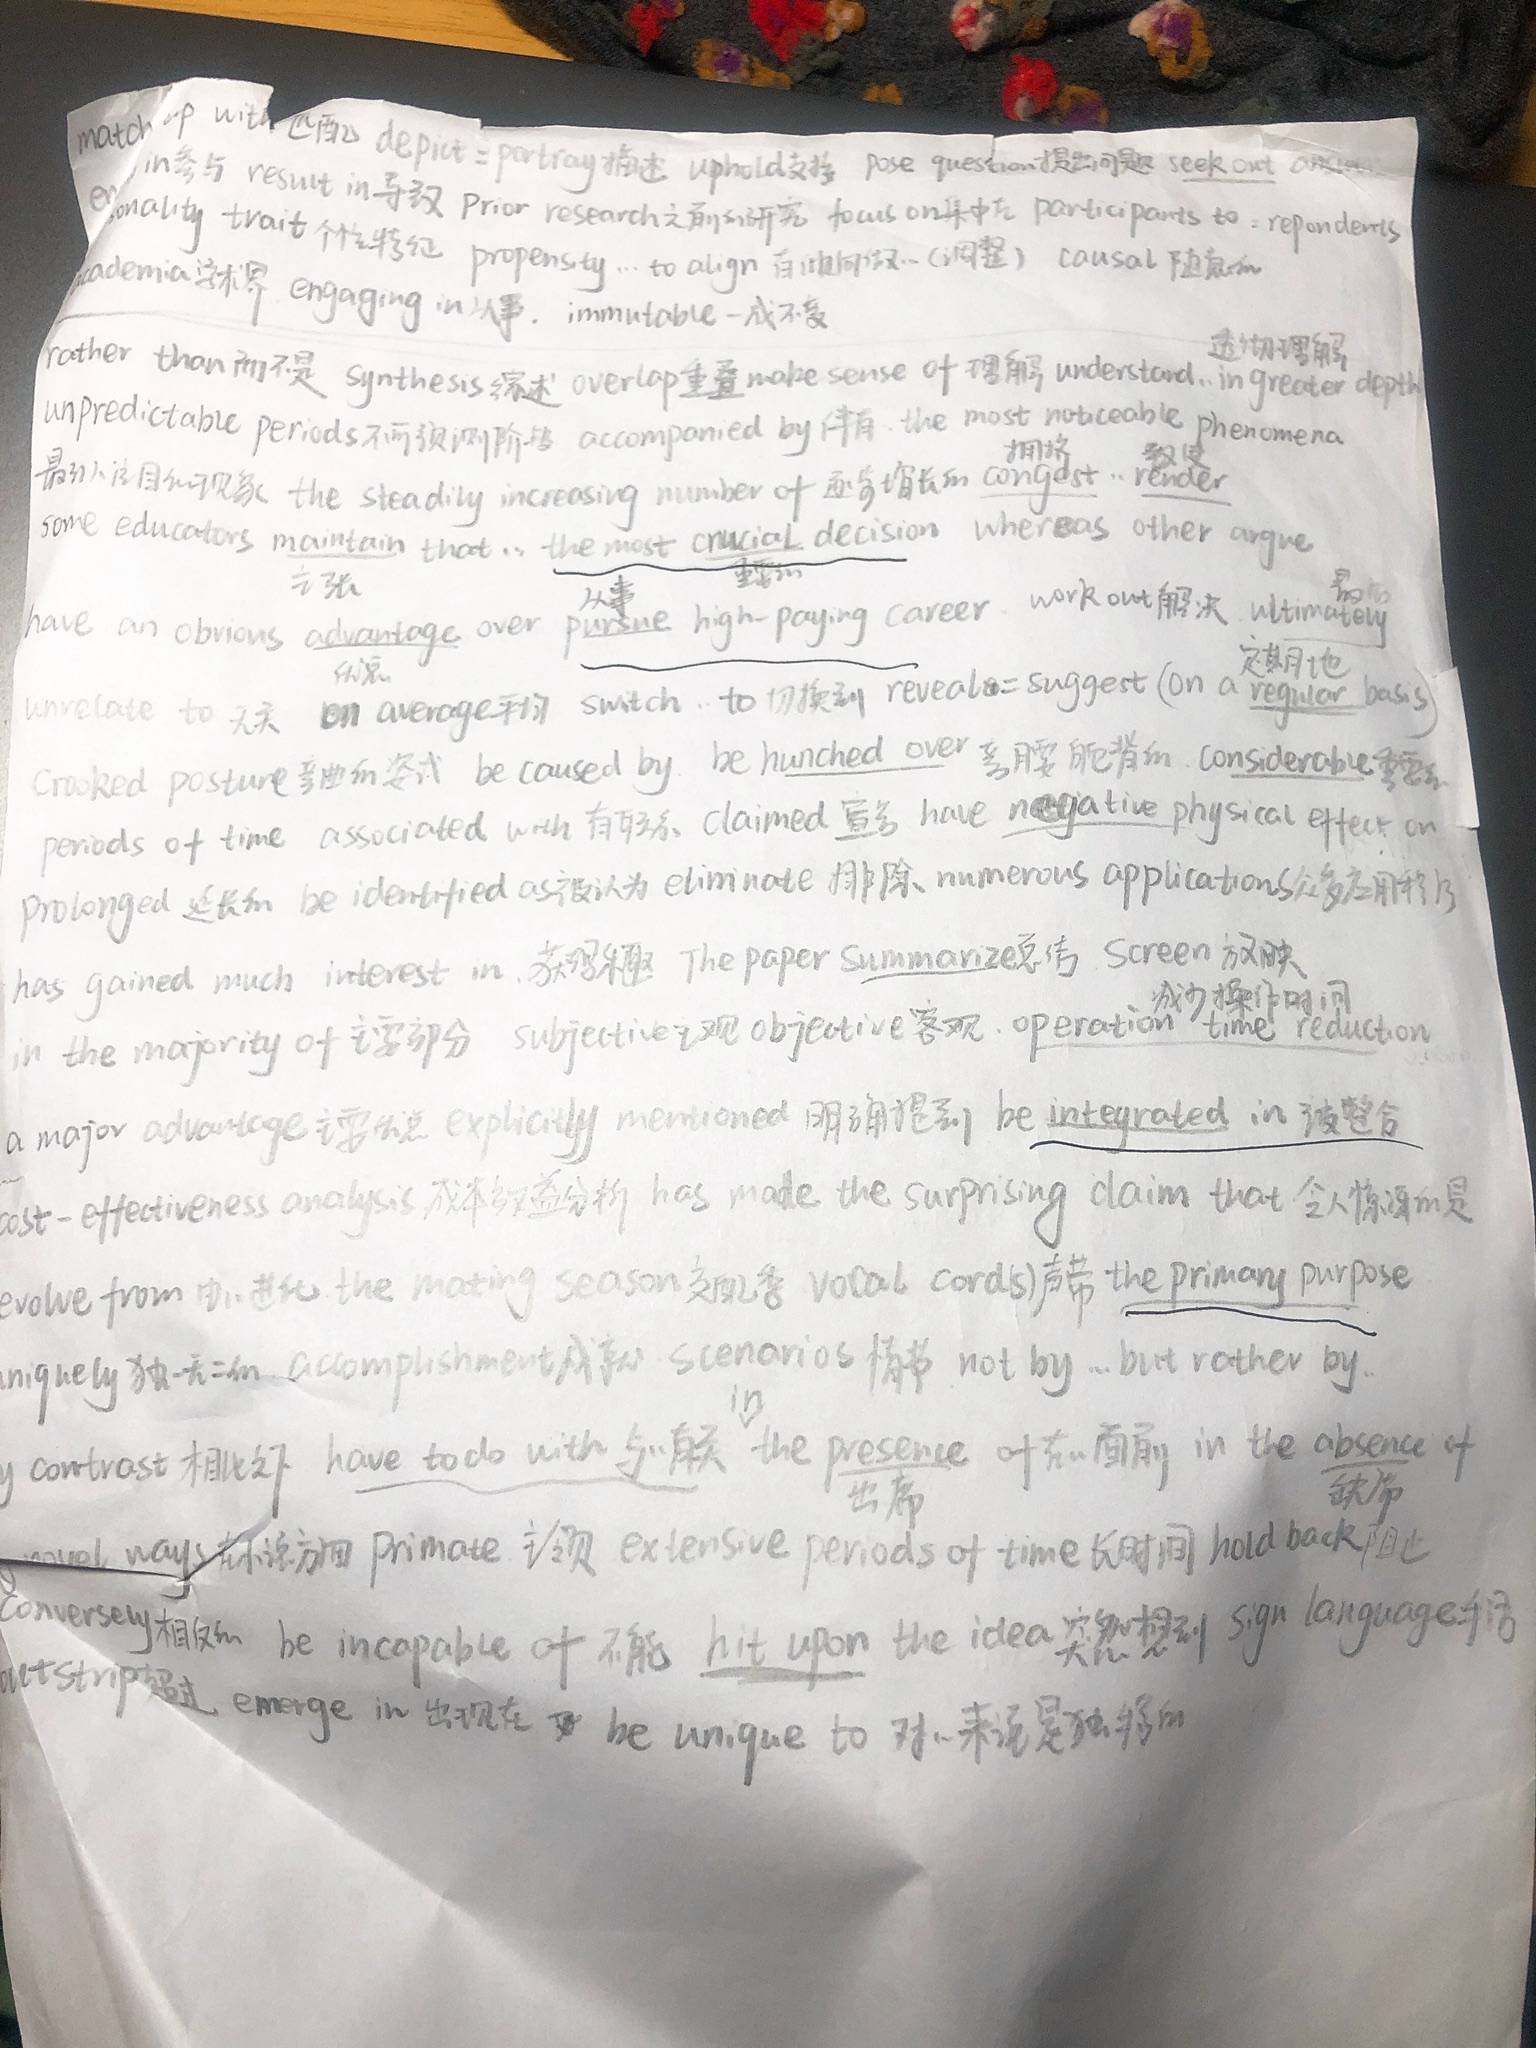 match up with 匹配 depict = portray 描述 uphold 支持 pose question 提出问题 seek out
in 参与 result in 导致 prior research 之前的研究 focus on 集中在 participants to = repondents
onality trait 个性特征 propensity... to align 有倾向做..(调整) causal 随意的
cademia 学术界 engaging in 从事. immutable 一成不变
透彻理解
rather than 而不是 synthesis 综述 overlap 重叠 make sense of 理解 understand.. in greater depth
unpredictable periods 不可预测阶段 accompanied by 伴有. the most noticeable phenomena
拥挤 致使
最引人注目的现象 the steadily increasing number of 逐步增长的 congest .. render
some educators maintain that .. the most crucial decision whereas other argue
主张 重要的
从事 最后
have an obvious advantage over pursue high-paying career. work out 解决 ultimately
优点 定期地
unrelate to 无关 on average 平均 switch .. to 切换到 reveal = suggest (on a regular basis)
crooked posture 弯曲的姿式 be caused by. be hunched over 弯腰驼背的. considerable 重要的
periods of time associated with 有联系 claimed 宣称 have negative physical effect on
prolonged 延长的 be identified as 被认为 eliminate 排除 numerous applications 众多应用程序
has gained much interest in. 获得兴趣 The paper summarize 总结 screen 放映
减少操作时间
in the majority of 主要部分 subjective 主观 objective 客观. operation time reduction
a major advantage 主要优点 explicitly mentioned 明确提到 be integrated in 被整合
cost-effectiveness analysis 成本效益分析 has made the surprising claim that 令人惊讶的是
evolve from 由..进化 the mating season 交配季 vocal cord(s) 声带 the primary purpose
niquely 独一无二的 accomplishment 成就 scenarios 情节 not by ... but rather by..
in
y contrast 相比之下 have to do with 与..有关 the presence of 在..面前 in the absence of
出席 缺席
novel ways primate extensive periods of time 长时间 hold back 阻止
conversely 相反的 be incapable of 不能 hit upon the idea 突然想到 sign language 手语
utstrip 超过 emerge in 出现在 be unique to 对..来说是独特的